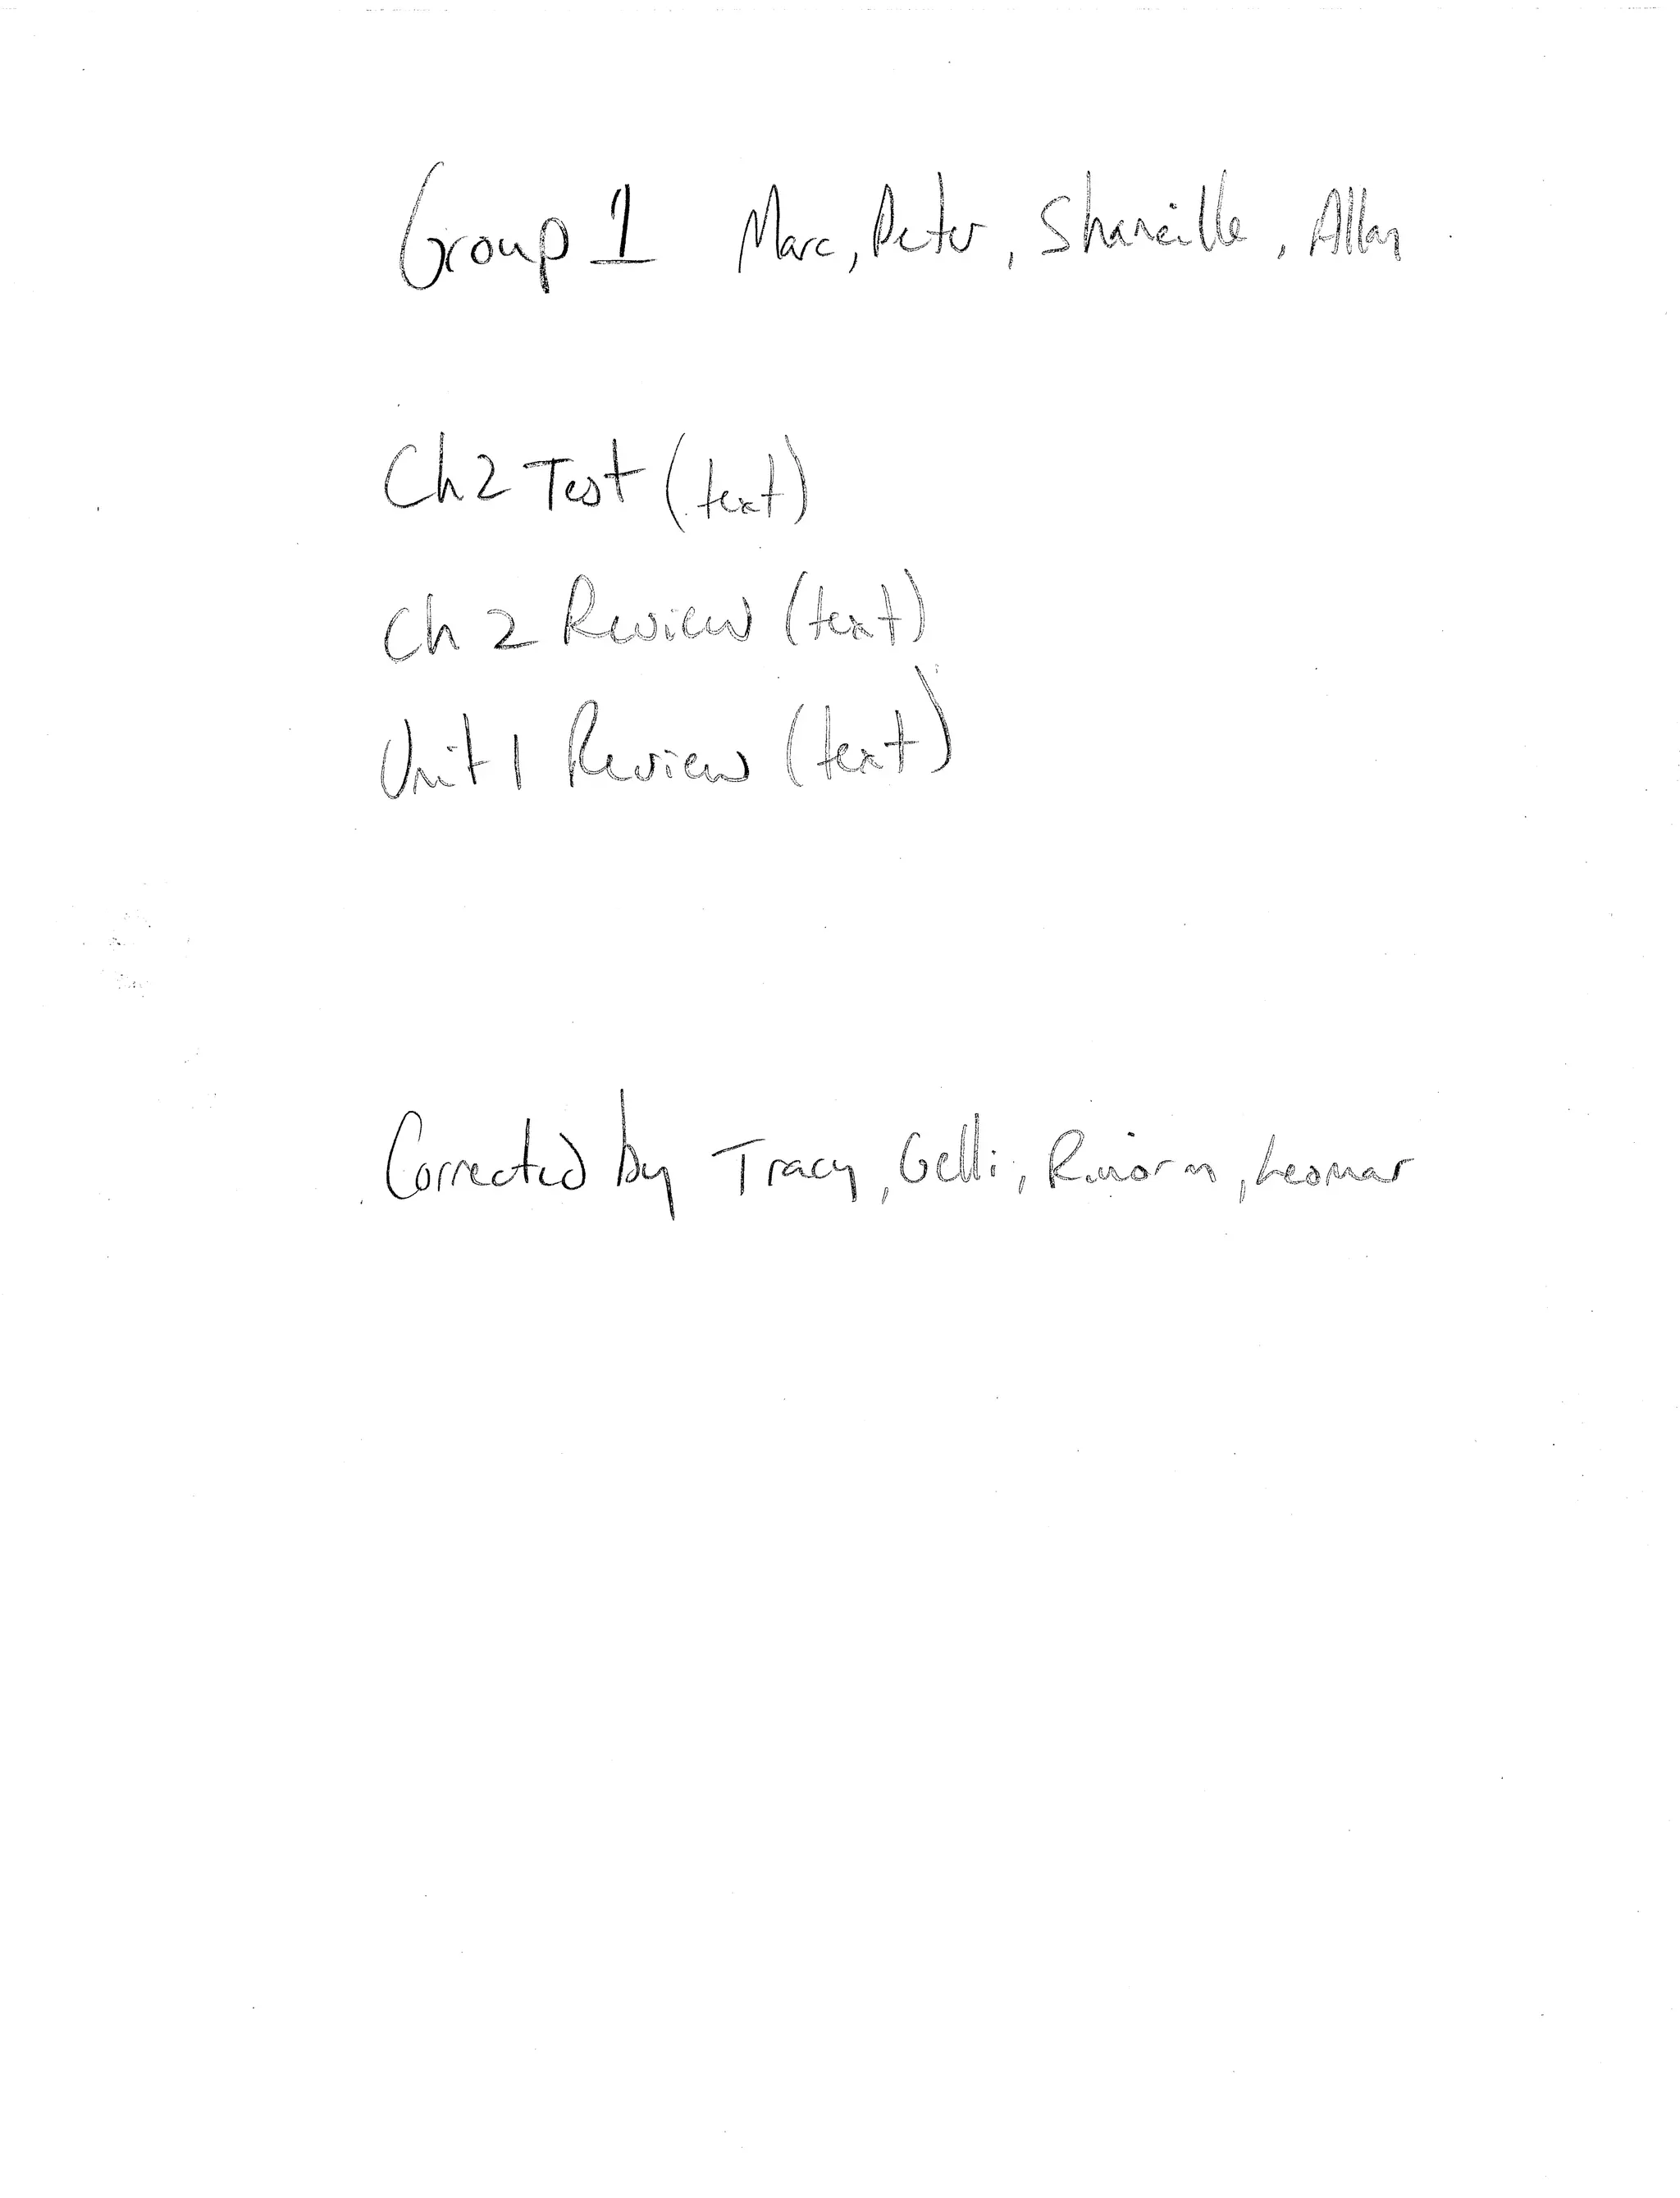 Group 1 Marc, Peter, Shaneille, Allan
Ch 2 Test (text)
Ch 2 Review (text)
Unit 1 Review (text)
Corrected by Tracy, Gelli, Leomar